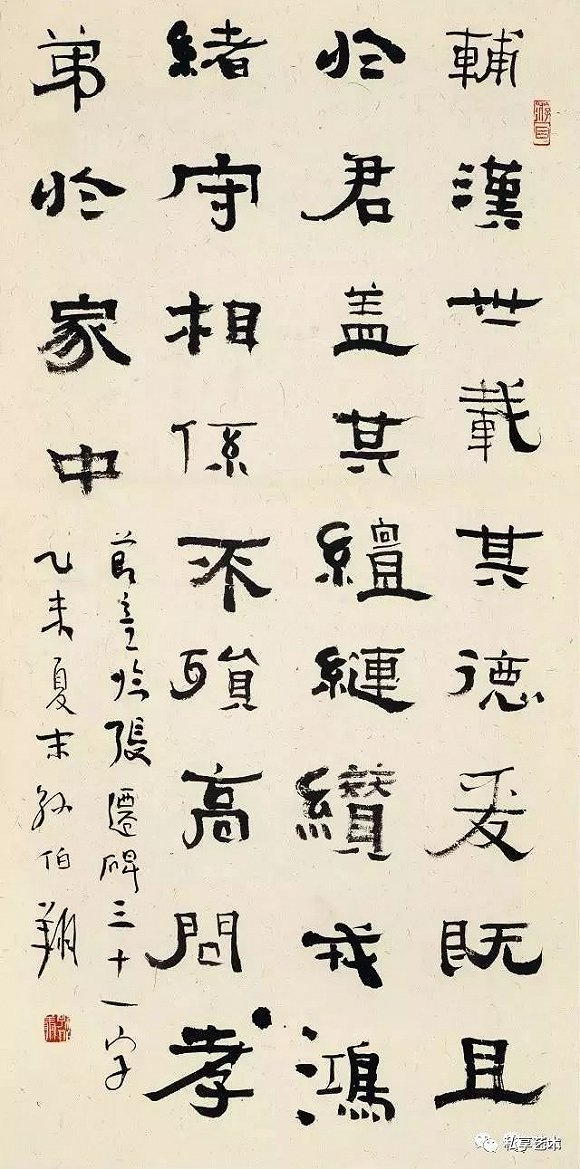 輔漢世載其德爰既且
於君盖其繵縺纘戎鴻
緒守相係不殞高問孝
弟於家中
節意臨張遷碑三十一字
乙未夏末孫伯翔
私享艺术